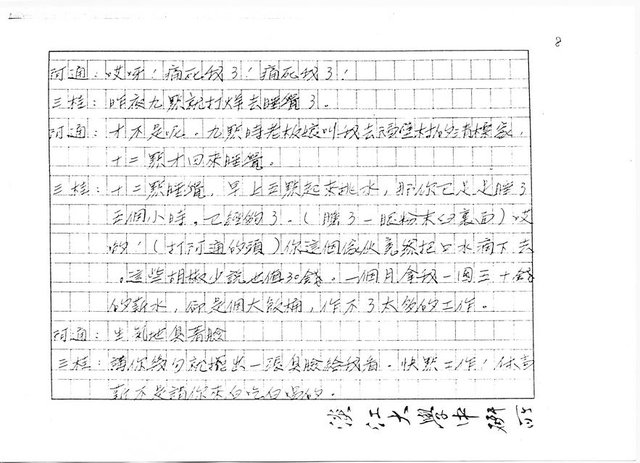 8
阿通：哎呀！痛死我了！痛死我了！
三桂：昨夜九點就打烊去睡覺了。
阿通：才不是呢。九點時老板娘叫我去
十二點才回來睡覺。
三桂：十二點睡覺，早上三點起來挑水，那你已足足睡了
三個小時，已經夠了。（瞧了一眼粉末 裏面）哎
的！（打阿通的頭）你這個傢伙竟然把口水滴下去
，這些胡椒少說也值30錢。一個月拿我一圓三十錢
的薪水，卻是個大飯桶，作不了太多的工作。
阿通：生氣地臭著臉
三桂：講你幾句就擺出一張臭臉給我看。快點工作！
薪不是請你來白吃白喝的。
淡江大學中研所